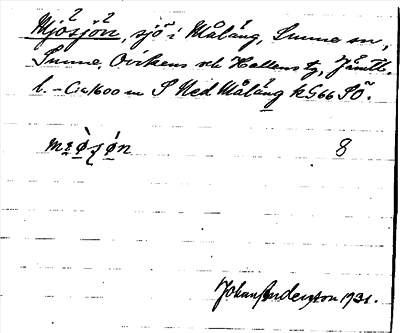 Mjösjön, sjö i Målång, Sunne sn,
Sunne, Ovikens och Hallens tg, Jämtl.
l. – Ca 1600 m S Ned Målång kG66 SÖ.
8
Johan Anderzson 1931.